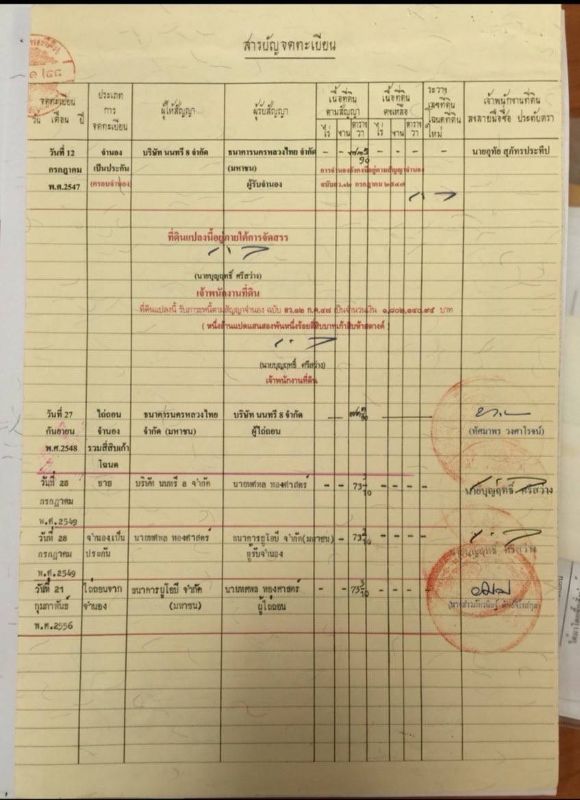 สารบัญจดทะเบียน
จดทะเบียน
วัน เดือน ปี
ประเภท
การ
จดทะเบียน
ผู้ให้สัญญา
ผู้รับสัญญา
เนื้อที่ดิน
ตามสัญญา
ไร่ งาน ตาราง วา
เนื้อที่ดิน
คงเหลือ
ไร่ งาน ตาราง วา
ระวาง
เลขที่ดิน
โฉนดที่ดิน
ใหม่
เจ้าพนักงานที่ดิน
ลงลายมือชื่อ ประทับตรา
วันที่ 12 จำนอง บริษัท นนทรี 8 จำกัด ธนาคารนครหลวงไทย จำกัด นายอุทัย สุภัทรประทีป
กรกฎาคม เป็นประกัน (มหาชน) การจำนองยังคงมีอยู่ตามสัญญาจำนอง
พ.ศ.2547 (ครอบจำนอง) ผู้รับจำนอง ฉบับลว.๑๒ กรกฎาคม ๒๕๔๗
ที่ดินแปลงนี้อยู่ภายใต้การจัดสรร
(นายบุญฤทธิ์ ศรีสว่าง)
เจ้าพนักงานที่ดิน
ที่ดินแปลงนี้ รับภาระหนี้ตามสัญญาจำนอง ฉบับ ลว.๑๒ ก.ค.๔๗ เป็นจำนวนเงิน ๑,๘๐๒,๑๔๐.๙๕ บาท
( หนึ่งล้านแปดแสนสองพันหนึ่งร้อยสี่สิบบาทเก้าสิบห้าสตางค์ )
(นายบุญฤทธิ์ ศรีสว่าง)
เจ้าพนักงานที่ดิน
วันที่ 27 ไถ่ถอน ธนาคารนครหลวงไทย บริษัท นนทรี 8 จำกัด
กันยายน จำนอง จำกัด (มหาชน) ผู้ไถ่ถอน (ทัศมาพร วงศาโรจน์)
พ.ศ.2548 รวมสี่สิบเก้า
โฉนด
วันที่ 28 ขาย บริษัท นนทรี 8 จำกัด นายทศพล ทองศาสตร์ - - 73 3/10 - - - - นายบุญฤทธิ์ ศรีสว่าง
กรกฎาคม
พ.ศ.2549
วันที่ 28 จำนองเป็น นายทศพล ทองศาสตร์ ธนาคารยูโอบี จำกัด(มหาชน) - - 73 3/10 - - - -
กรกฎาคม ประกัน ผู้รับจำนอง นายบุญฤทธิ์ ศรีสว่าง
พ.ศ.2549
วันที่ 21 ไถ่ถอนจาก ธนาคารยูโอบี จำกัด นายทศพล ทองศาสตร์ - - 73 3/10 - - - -
กุมภาพันธ์ จำนอง (มหาชน) ผู้ไถ่ถอน
พ.ศ.2556